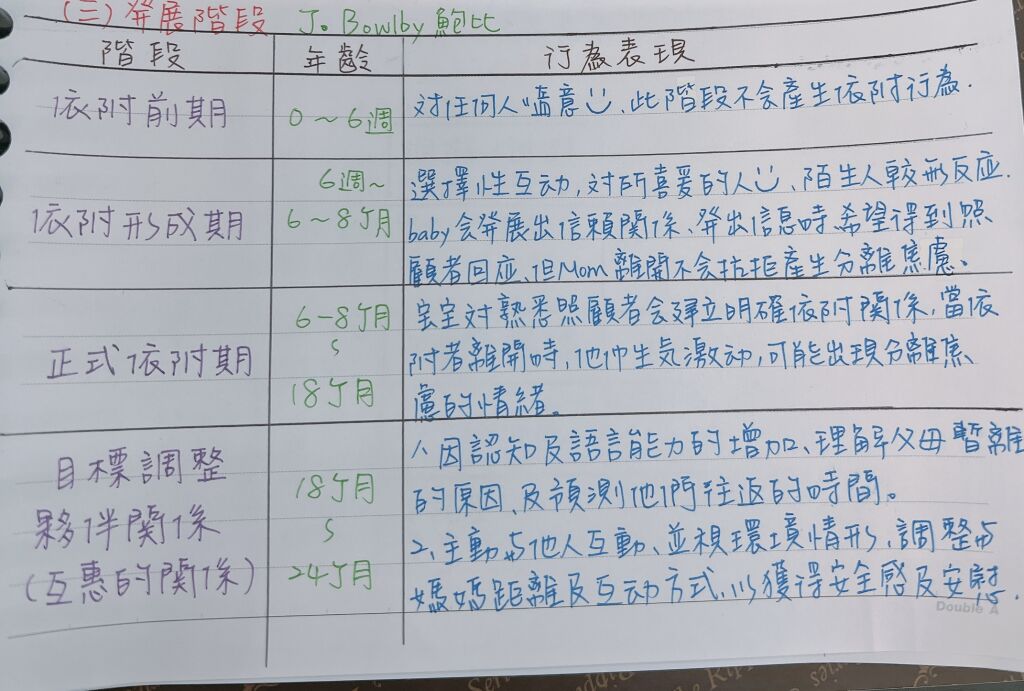 (三)発展階段 J. Bowlby 鮑比
階段 年齡 行為表現
依附前期 0～6週 対任何人"嗑意☺、此階段不会產生依附行為.
6週~ 選擇性互动,対所喜爱的人☺、陌生人較無反应.
依附形成期 6～8ケ月 baby会発展出信賴関係、発出信息時、希望得到照
顧者回应、但Mom離開不会抗拒產生分離焦慮、
6-8ケ月 宝宝対熟悉照顧者会建立明確依附関係,當依
正式依附期 附者離開時,他们生気激动,可能出現分離焦
18ケ月 慮的情緒。
1、因認知及語言能力的增加、理解父母暫離
目標調整 18ケ月 的原因、及預測他們往返的時間。
夥伴関係 2、主動与他人互動、並視環境情形,調整与
(互惠的関係) 24ケ月 媽媽距離及互动方式、以獲得安全感及安慰.
Double A